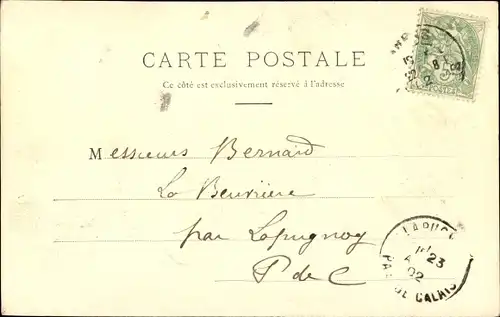 CARTE POSTALE
Ce côté est exclusivement réservé à l'adresse
Messieurs Bernard
La Beuvrière
par Lapugnoy
P de C
POSTES
23
02
PAS DE CALAIS